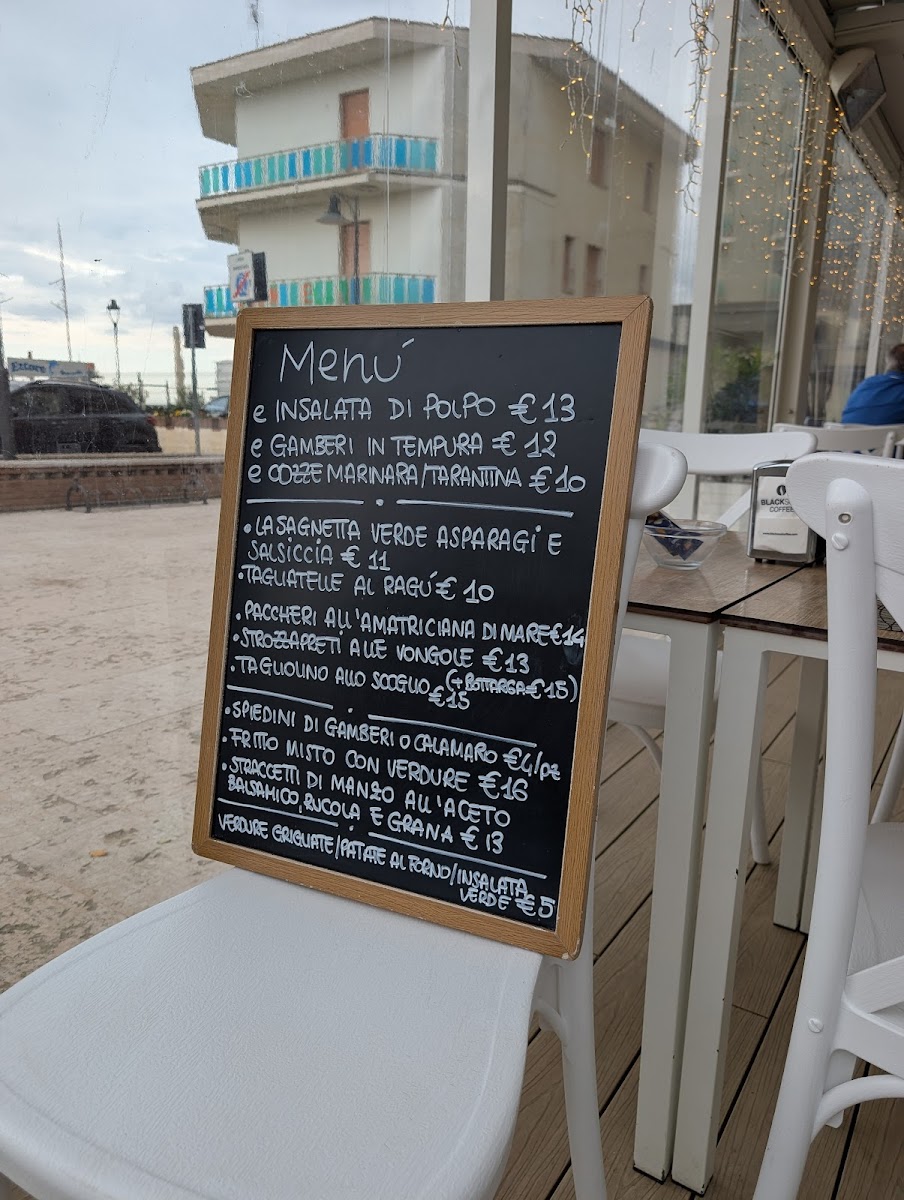 Menú
e INSALATA DI POLPO €13
e GAMBERI IN TEMPURA €12
e COZZE MARINARA/TARANTINA €10
• LASAGNETTA VERDE ASPARAGI E
SALSICCIA €11
• TAGLIATELLE AL RAGÚ €10
• PACCHERI ALL'AMATRICIANA DI MARE €14
• STROZZAPRETI ALLE VONGOLE €13
• TAGLIOLINO ALLO SCOGLIO (+BOTTARGA €18)
€15
• SPIEDINI DI GAMBERI O CALAMARO €4/pz
• FRITTO MISTO CON VERDURE €16
• STRACCETTI DI MANZO ALL'ACETO
BALSAMICO, RUCOLA E GRANA €13
VERDURE GRIGLIATE/PATATE AL FORNO/INSALATA
VERDE €5
Ettore
COFFEE